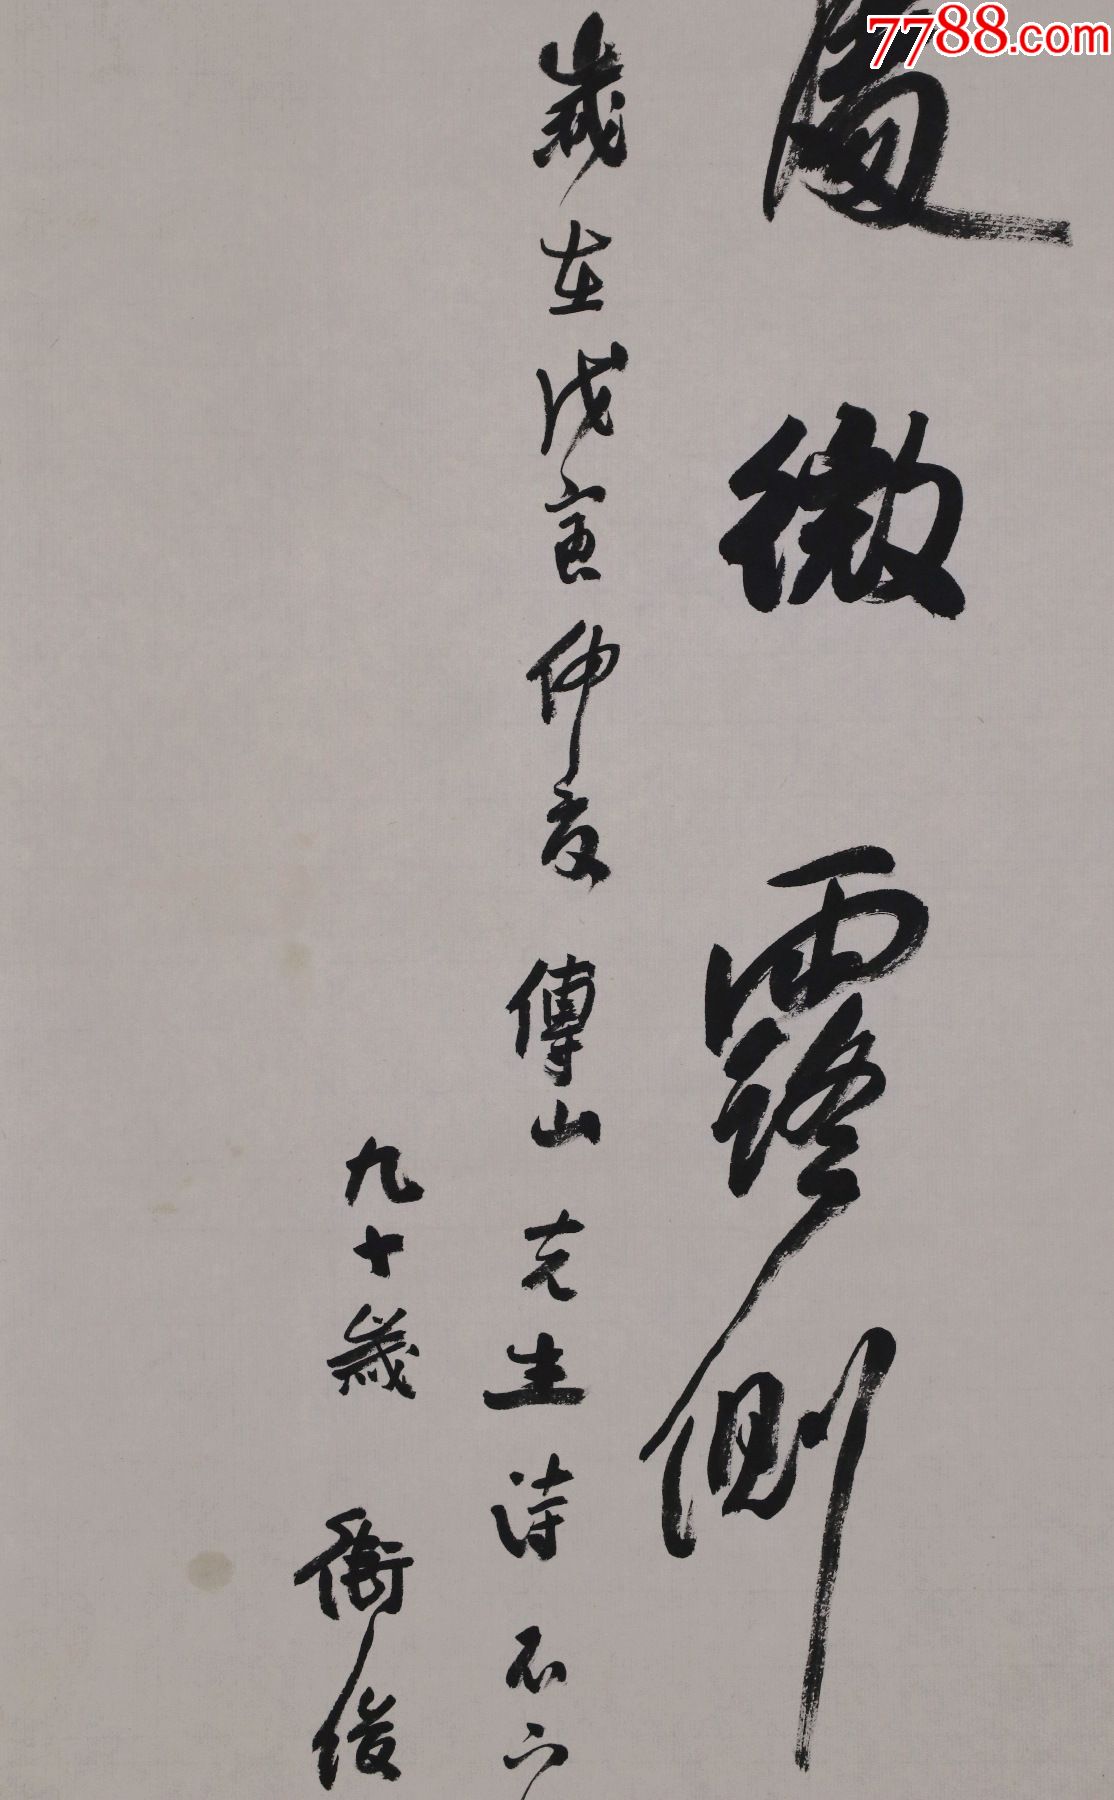 7788.com
微露側
歲在戊寅仲夏傅山先生詩
九十歲衛俊